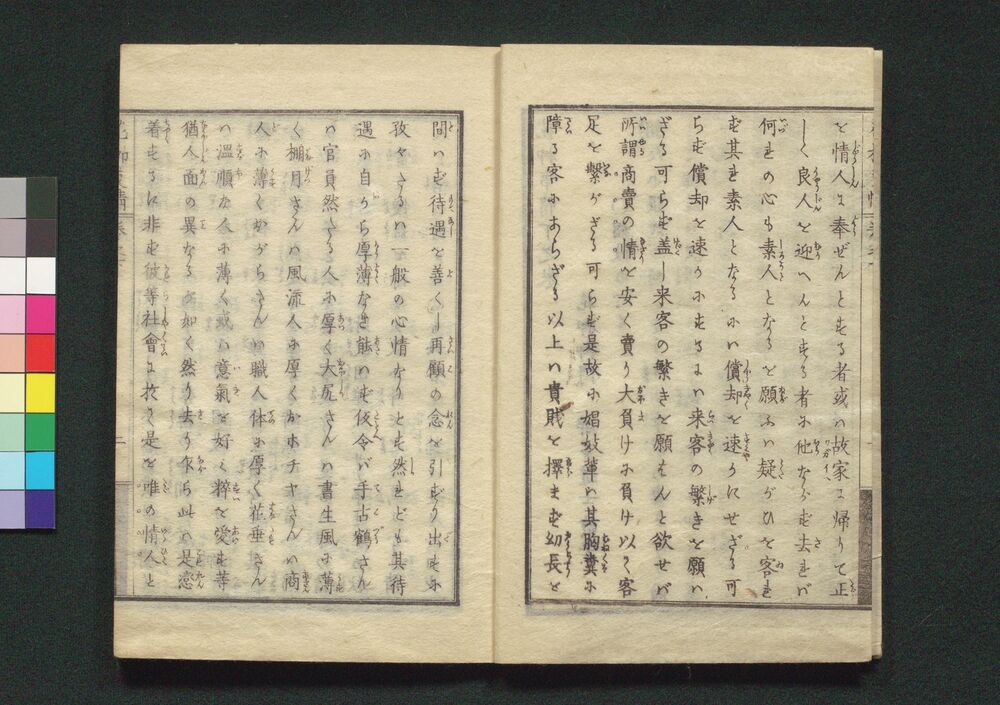 を情人に奉ぜんとする者或ハ故家に帰りて正
しく良人を迎へんとする者か他なからず去れバ
何れの心も素人となるを願ふハ疑がひを客れ
ず其れ素人となるにハ償却を速かにせざる可
らず償却を速かにするにハ来客の繁きを願ハ
ざる可らず盖し来客の繁きを願はんと欲せバ
所謂商賣の情を安く賣り大負けに負け以て客
足を繋がざる可らず是故に娼妓輩ハ其胸裏に
障る客にあらざる以上ハ貴賎を擇まず幼長を
問ハず待遇を善くし再顧の念を引ずり出すに
孜々たるハ一般の心情なりとす然れども其待
遇に自から厚薄なき能ハず仮令バ手古鶴さん
ハ官員然たる人に厚く大尻さんハ書生風に薄
く棚月さんハ風流人に厚くかホチヤさんハ商
人に薄くかがらさんハ職人体に厚く花垂さん
ハ温順な人に薄く或ハ意氣を好く粋を愛す等
猶人面の異なるが如く然り去り乍ら此ハ是恋
着するに非ず彼等社會に於て是を唯の情人と